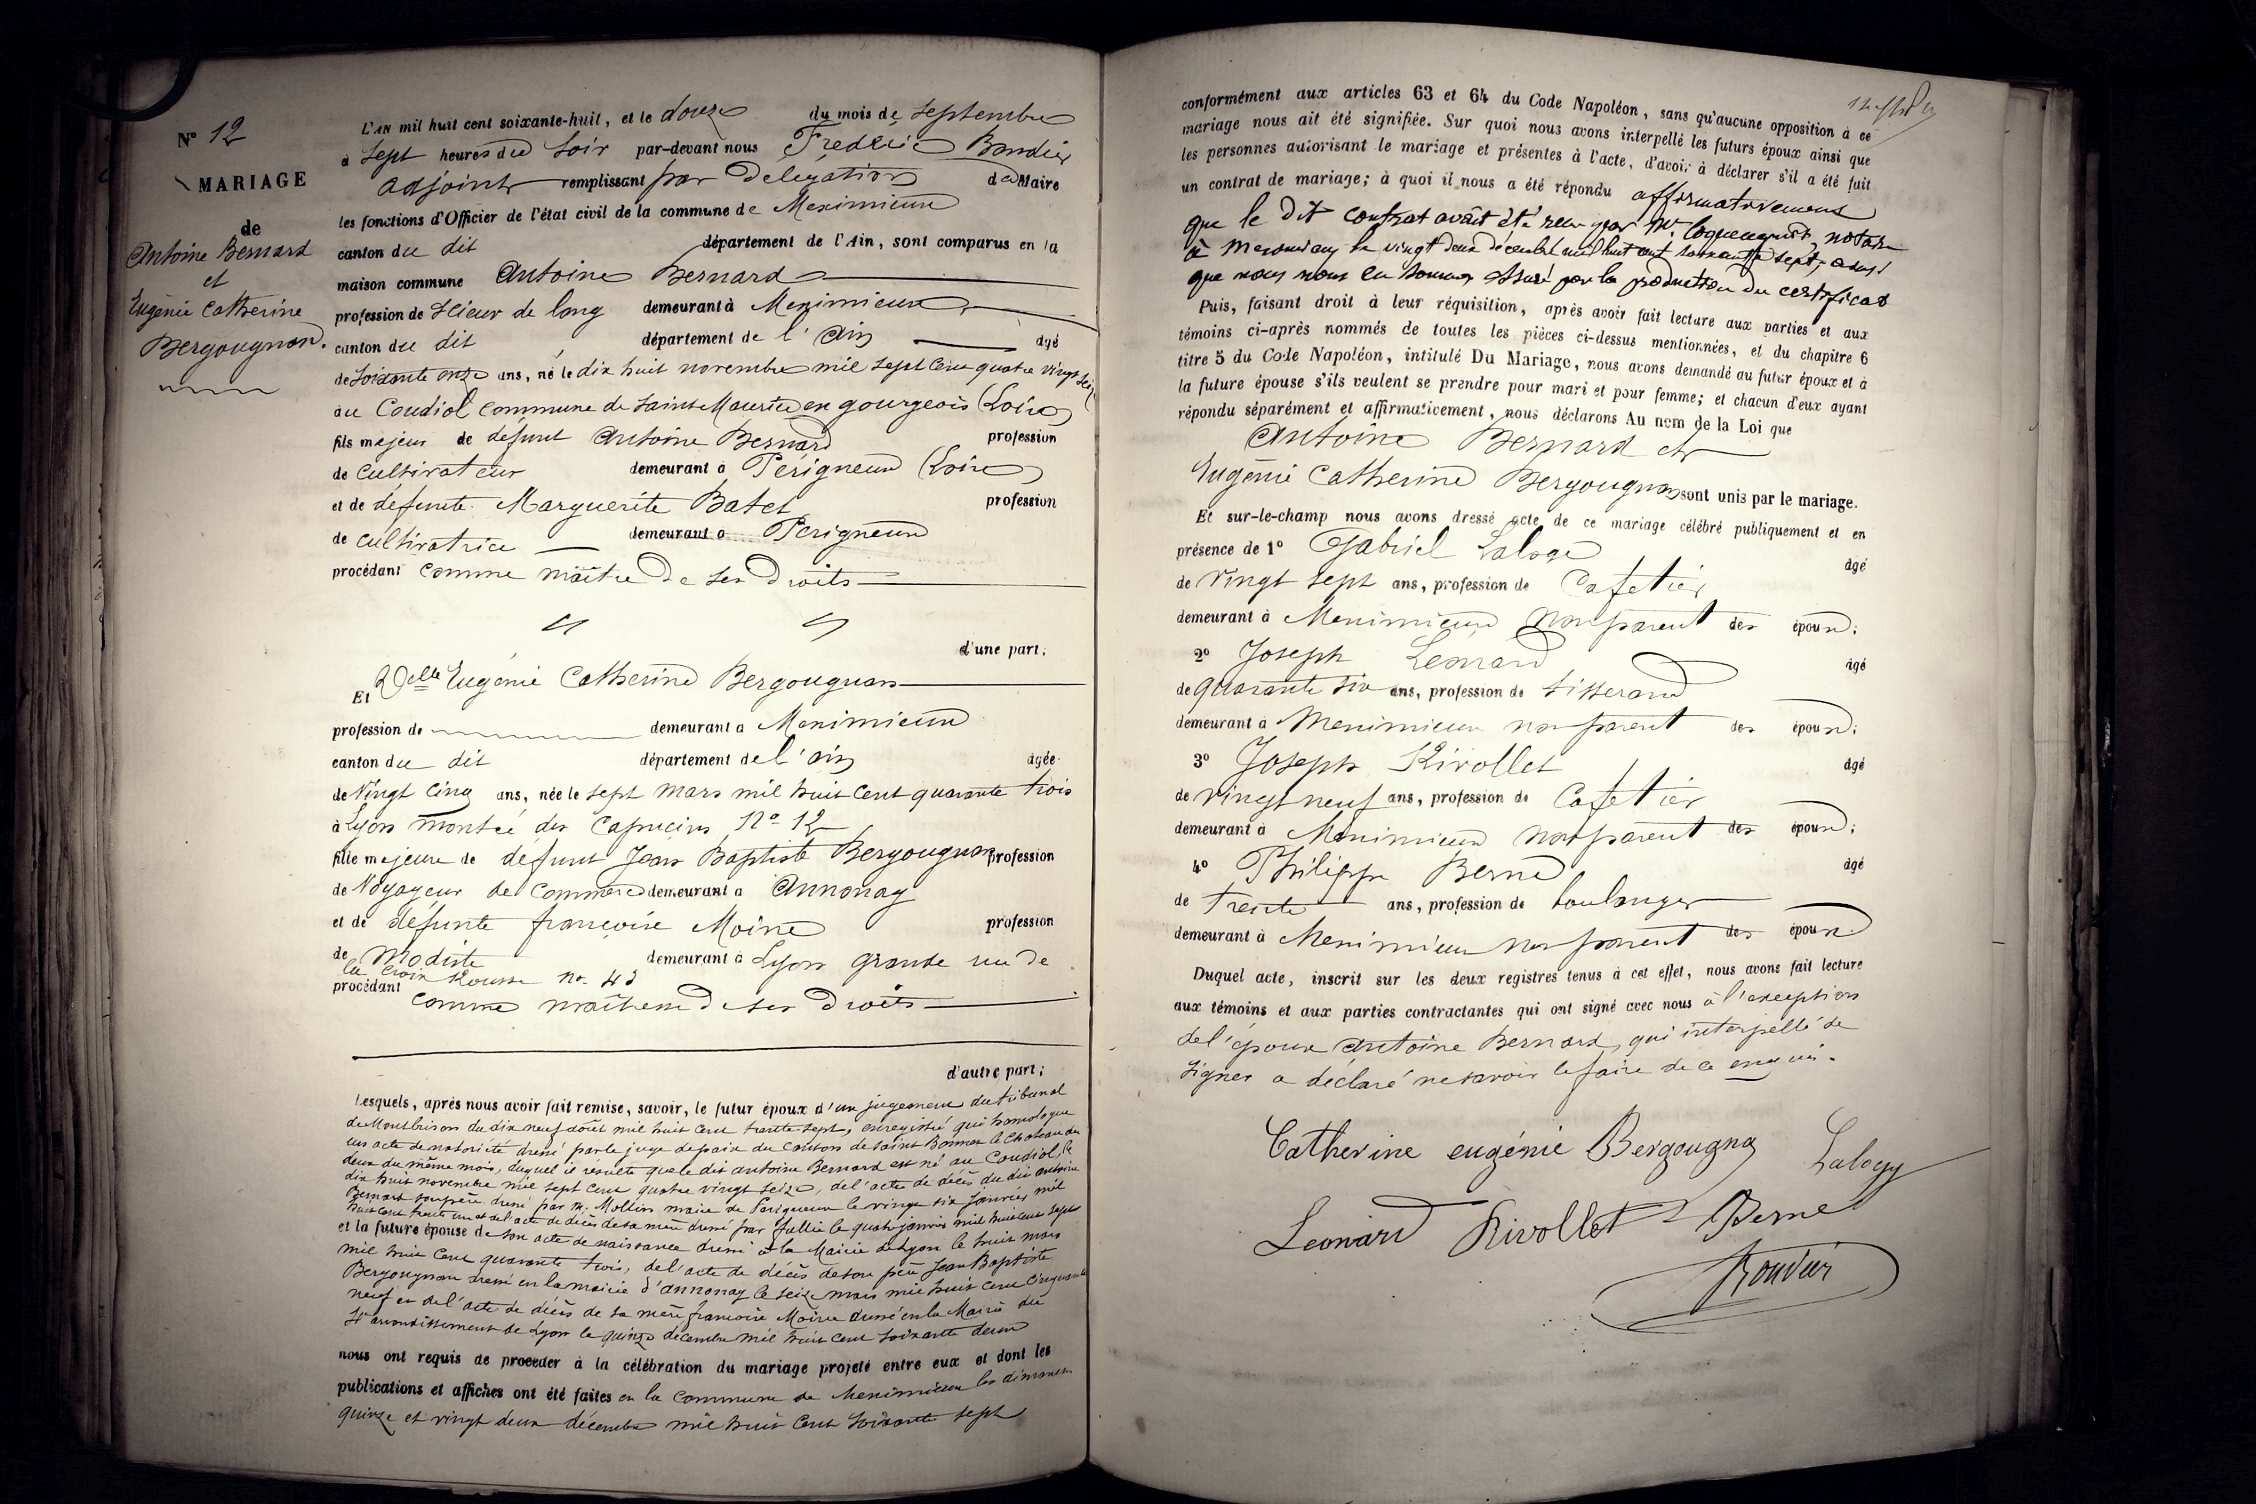 Nº 12
MARIAGE
de
Antoine Bernard
et
Eugénie Catherine
Bergougnon.
L'AN mil huit cent soixante-huit, et le douze du mois de septembre
à sept heures du soir par-devant nous Frédéric
adjoint remplissant par délégation du Maire
les fonctions d'Officier de l'état civil de la commune de Meximieux
canton du dit département de l'Ain, sont comparus en la
maison commune Antoine Bernard
profession de scieur de long demeurant à Meximieux
canton du dit département de l'Ain âgé
de soixante onze ans, né le dix huit novembre mil sept cent quatre vingt seize
au Coudiol commune de Saint Maurice en gourgeois (Loire)
fils majeur de défunt Antoine Bernard profession
de cultivateur demeurant à Périgneux (Loire)
et de défunte Marguerite Batet profession
de cultivatrice demeurant à Périgneux
procédant comme maître de ses droits
d'une part;
Et Delle Eugénie Catherine Bergougnon
profession de demeurant à Meximieux
canton du dit département de l'ain âgée
de Vingt cinq ans, née le sept mars mil huit cent quarante trois
à Lyon montée des Capucins Nº 12
fille majeure de défunt Jean Baptiste Bergougnon profession
de Voyageur de Commerce demeurant à Annonay
et de défunte françoise Moine profession
de Modiste demeurant à Lyon grande rue de
la Croix Rousse no. 43
procédant comme maîtresse de ses droits
d'autre part;
Lesquels, après nous avoir fait remise, savoir, le futur époux d'un jugement du tribunal
de Montbrison du dix neuf août mil huit cent trente sept, enregistré qui homologue
un acte de notoriété dressé par le juge de paix du Canton de Saint Bonnet le Chateau du
deux du même mois, duquel il résulte que le dit Antoine Bernard est né au Coudiol, le
dix huit novembre mil sept cent quatre vingt seize, de l'acte de décès du dit antoine
Bernard son père dressé par M. maire de Périgneux le vingt six janvier mil
huit cent trente un et de l'acte de décès de sa mère dressé par le quatre janvier mil huit cent sept
et la future épouse de son acte de naissance dressé à la Mairie de Lyon le huit mars
mil huit cent quarante trois, de l'acte de décès de son père Jean Baptiste
Bergougnon dressé en la mairie d'annonay le seize mars mil huit cent cinquante
neuf et de l'acte de décès de sa mère françoise Moine dressé en la Mairie du
arrondissement de Lyon le quinze décembre mil huit cent soixante deux
nous ont requis de procéder à la célébration du mariage projeté entre eux et dont les
publications et affiches ont été faites en la commune de Meximieux les dimanches
quinze et vingt deux décembre mil huit cent soixante sept
conformément aux articles 63 et 64 du Code Napoléon, sans qu'aucune opposition à ce
mariage nous ait été signifiée. Sur quoi nous avons interpellé les futurs époux ainsi que
les personnes autorisant le mariage et présentes à l'acte, d'avoir à déclarer s'il a été fait
un contrat de mariage; à quoi il nous a été répondu affirmativement
que le dit contrat avait été reçu par Me notaire
à Meximieux le vingt deux décembre mil huit cent soixante sept, ainsi
que nous nous en sommes assuré par la production du certificat
Puis, faisant droit à leur réquisition, après avoir fait lecture aux parties et aux
témoins ci-après nommés de toutes les pièces ci-dessus mentionnées, et du chapitre 6
titre 5 du Code Napoléon, intitulé Du Mariage, nous avons demandé au futur époux et à
la future épouse s'ils veulent se prendre pour mari et pour femme; et chacun d'eux ayant
répondu séparément et affirmativement, nous déclarons Au nom de la Loi que
Antoine Bernard et
Eugénie Catherine Bergougnon sont unis par le mariage.
Et sur-le-champ nous avons dressé acte de ce mariage célébré publiquement et en
présence de 1º Gabriel Laloge âgé
de vingt sept ans, profession de Cafetier
demeurant à Meximieux non parent des époux;
2º Joseph Leonard âgé
de quarante six ans, profession de tisserand
demeurant à Meximieux non parent des époux;
3º Joseph Rivollet âgé
de vingt neuf ans, profession de Cafetier
demeurant à Meximieux non parent des époux;
4º Philippe Berne âgé
de trente ans, profession de boulanger
demeurant à Meximieux non parent des époux
Duquel acte, inscrit sur les deux registres tenus à cet effet, nous avons fait lecture
aux témoins et aux parties contractantes qui ont signé avec nous à l'exception
de l'époux Antoine Bernard, qui interpellé de
signer a déclaré ne savoir le faire de ce enquis.
Catherine eugénie Bergougnon
Laloge
Leonard Rivollet Berne